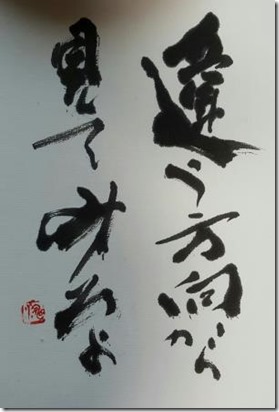 違う方向から
見てみろよ